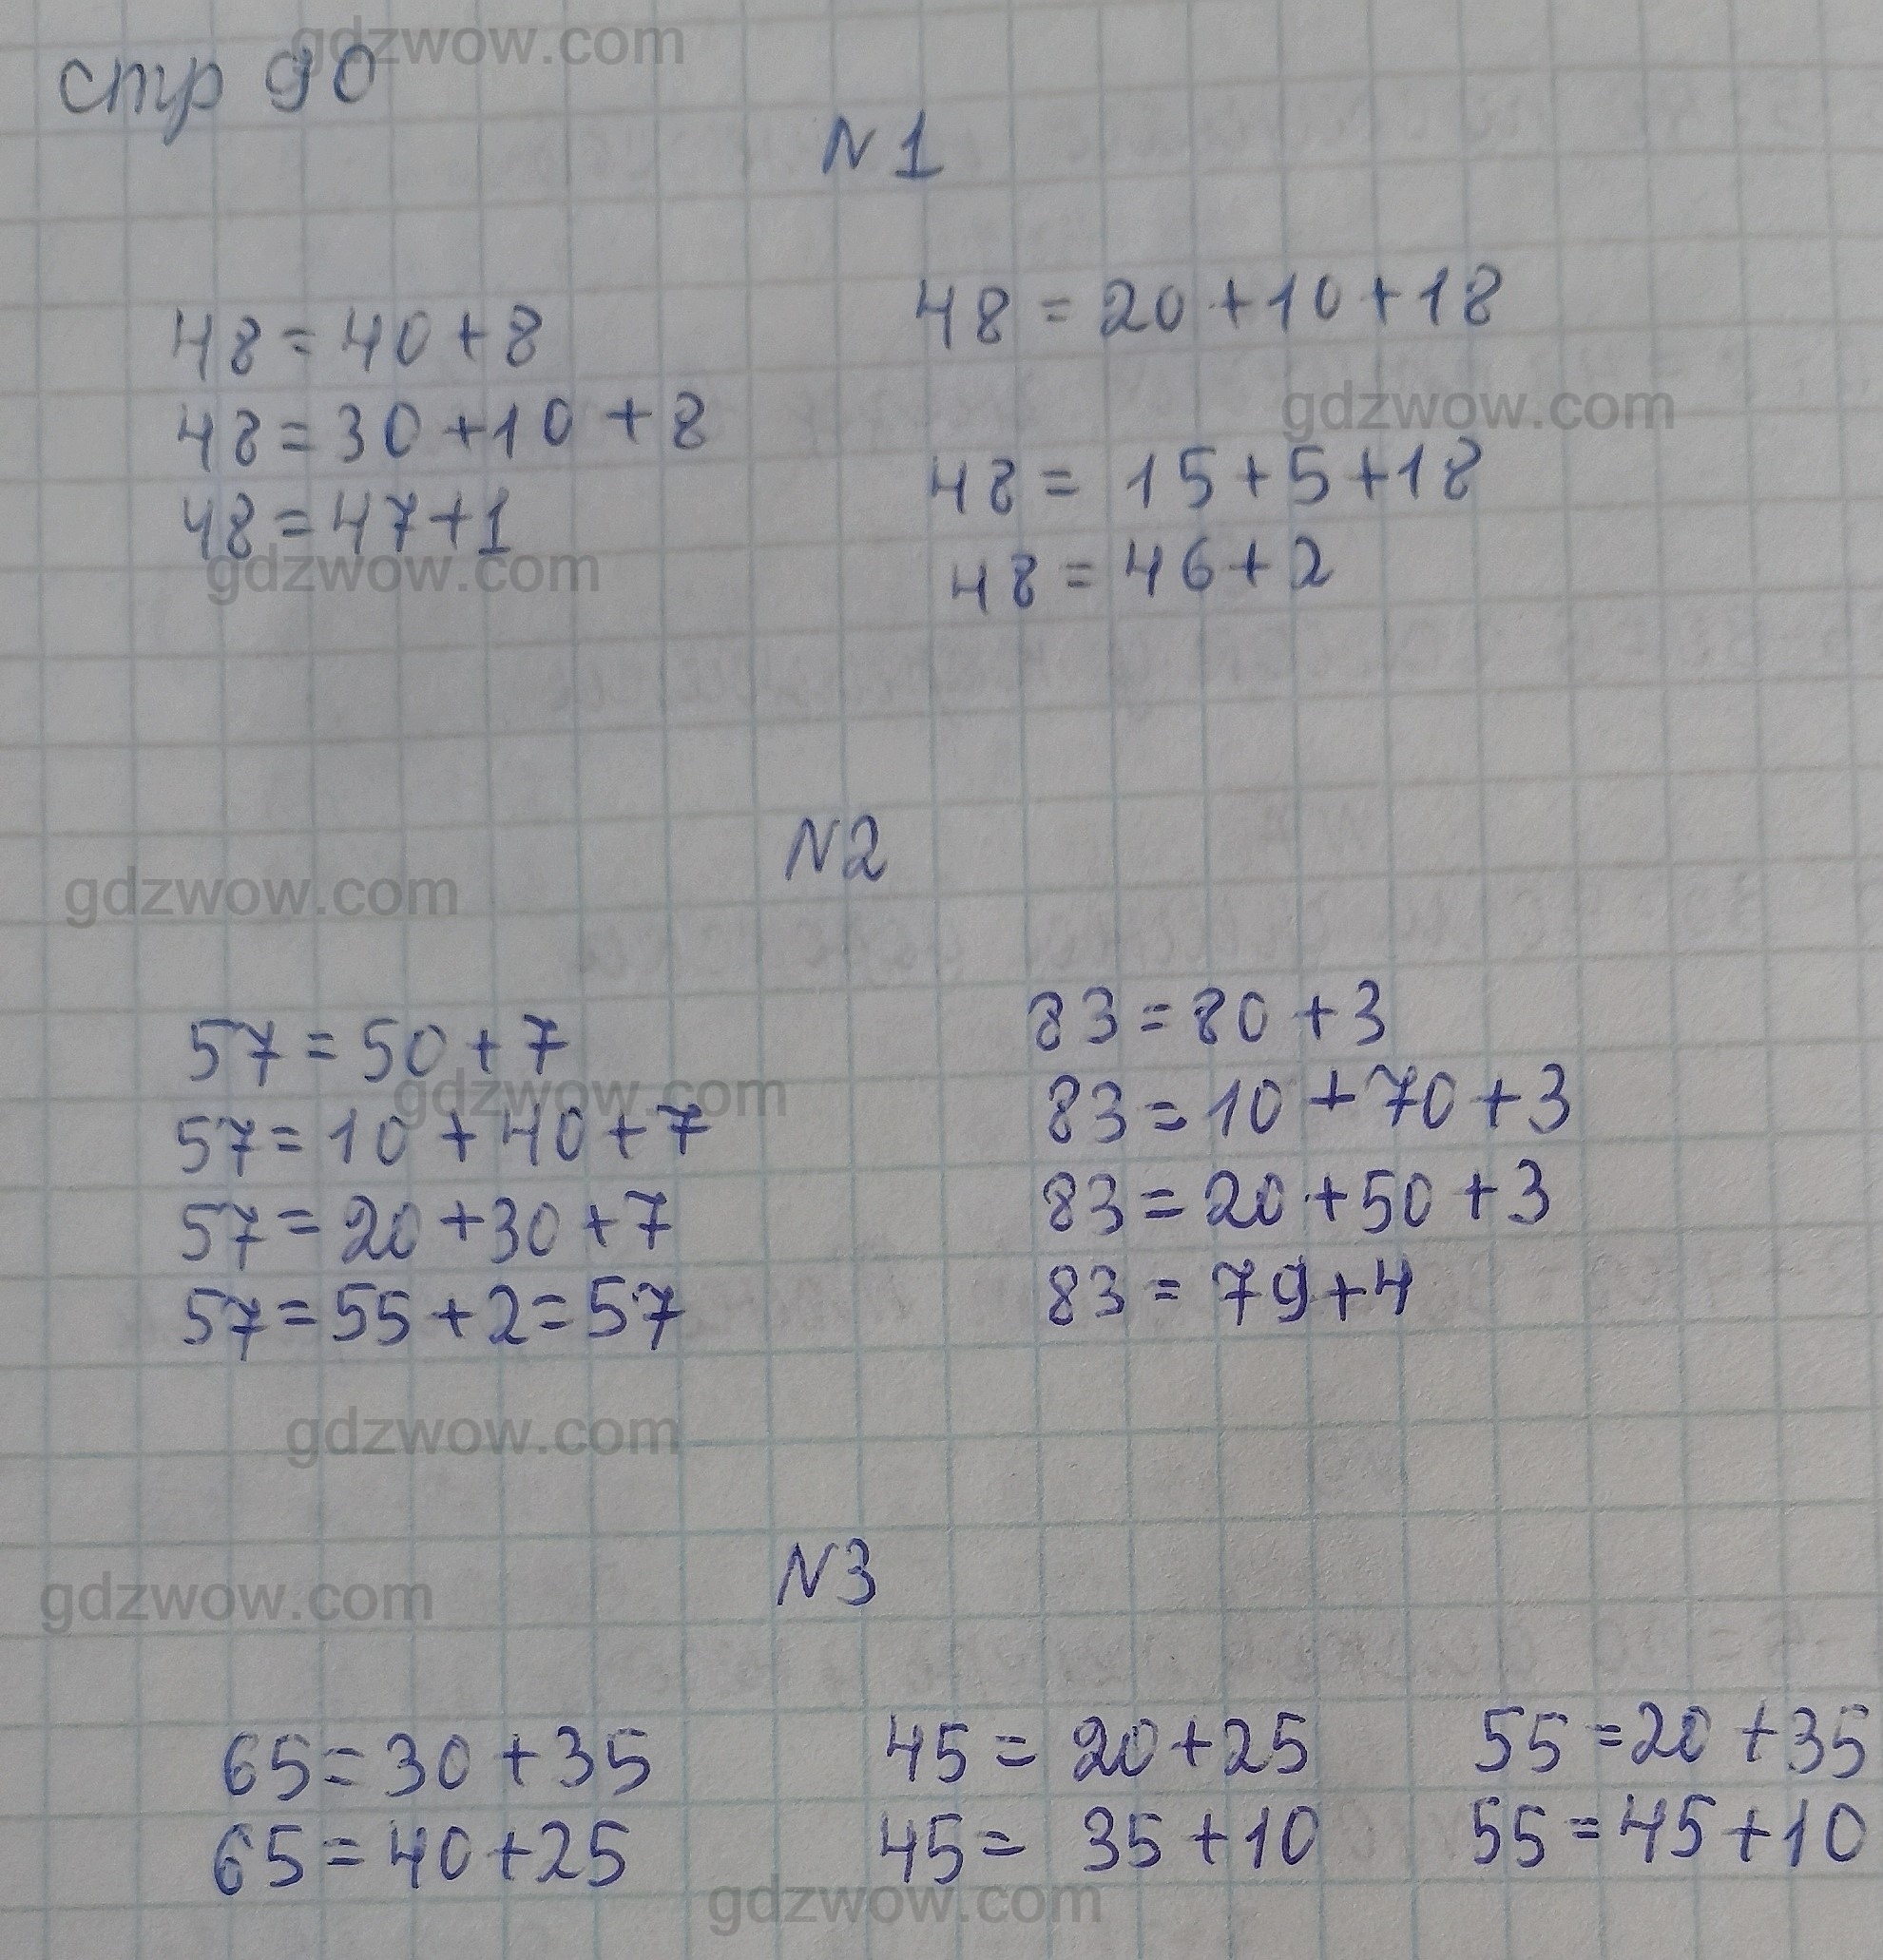 стр 90
N1
48 = 40 + 8
48 = 30 + 10 + 8
48 = 47 + 1
48 = 20 + 10 + 18
48 = 15 + 5 + 18
48 = 46 + 2
N2
57 = 50 + 7
57 = 10 + 40 + 7
57 = 20 + 30 + 7
57 = 55 + 2 = 57
83 = 80 + 3
83 = 10 + 70 + 3
83 = 20 + 50 + 3
83 = 79 + 4
N3
65 = 30 + 35
65 = 40 + 25
45 = 20 + 25
45 = 35 + 10
55 = 20 + 35
55 = 45 + 10
gdzwow.com
gdzwow.com
gdzwow.com
gdzwow.com
gdzwow.com
gdzwow.com
gdzwow.com
gdzwow.com